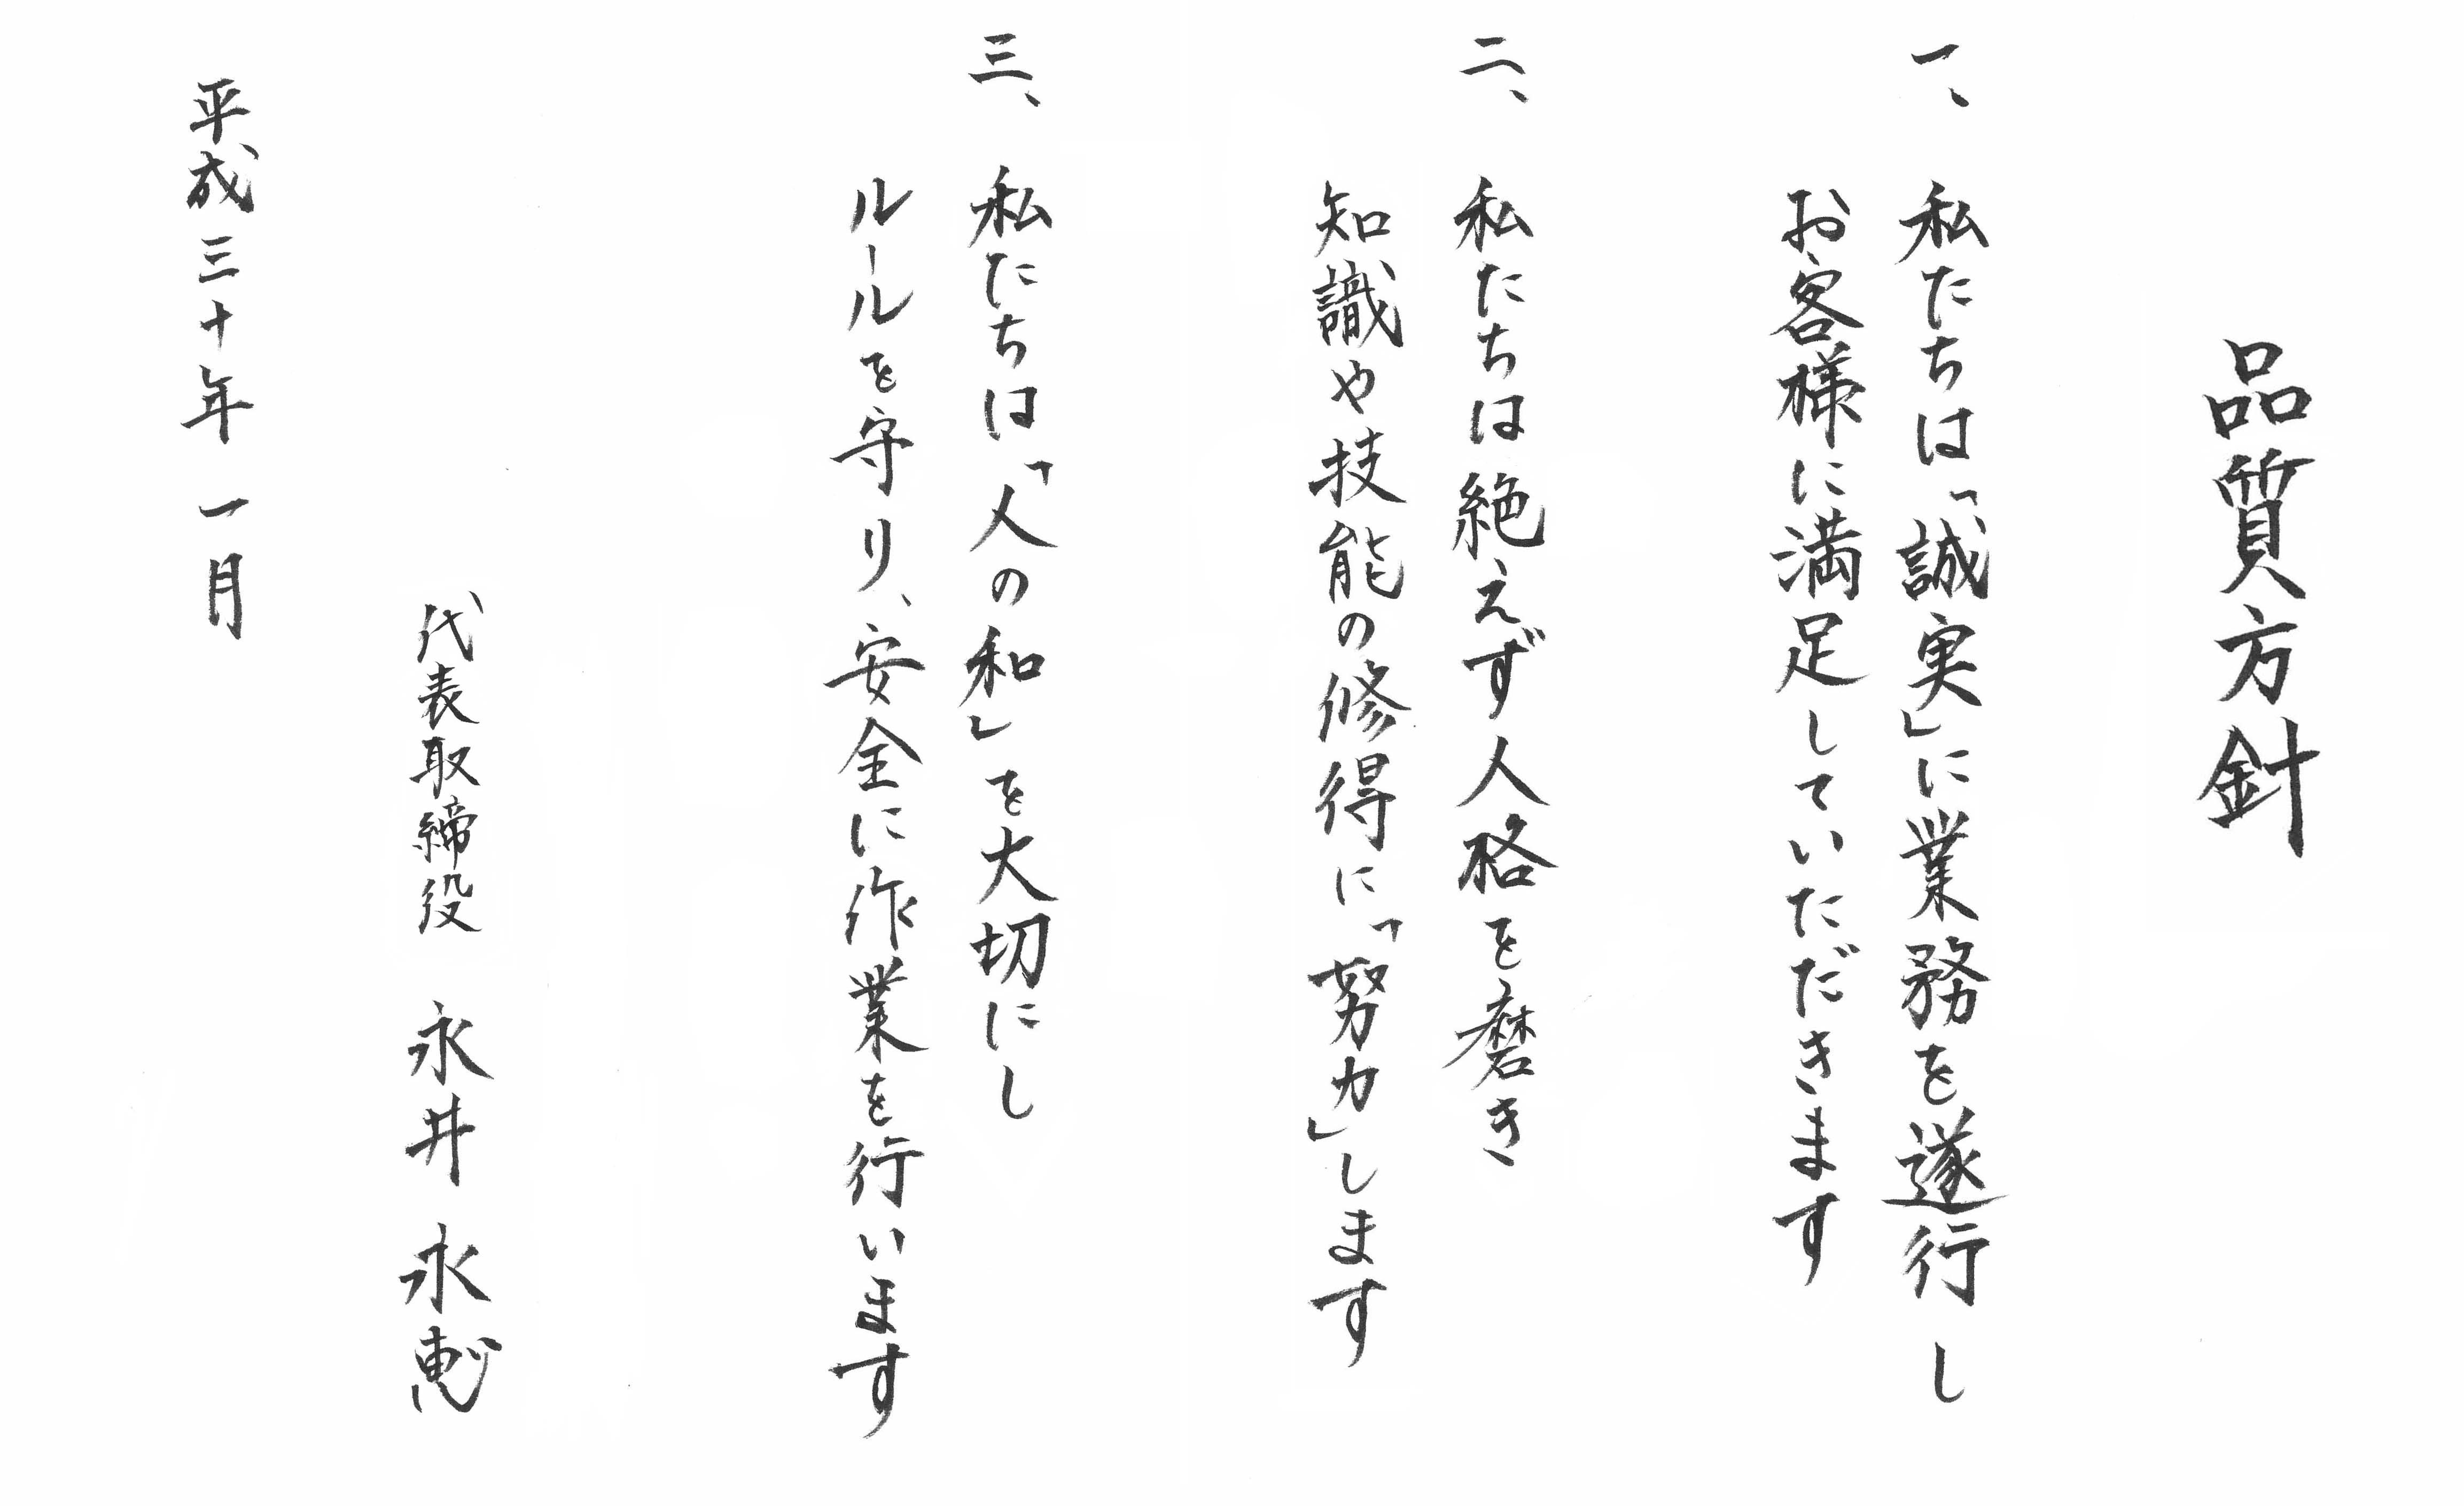 品質方針
一、私たちは「誠実」に業務を遂行し
お客様に満足していただきます
二、私たちは絶えず人格を磨き
知識や技能の修得に「努力」します
三、私たちは「人の和」を大切にし
ルールを守り、安全に作業を行います
代表取締役 永井 永
平成三十年 一月